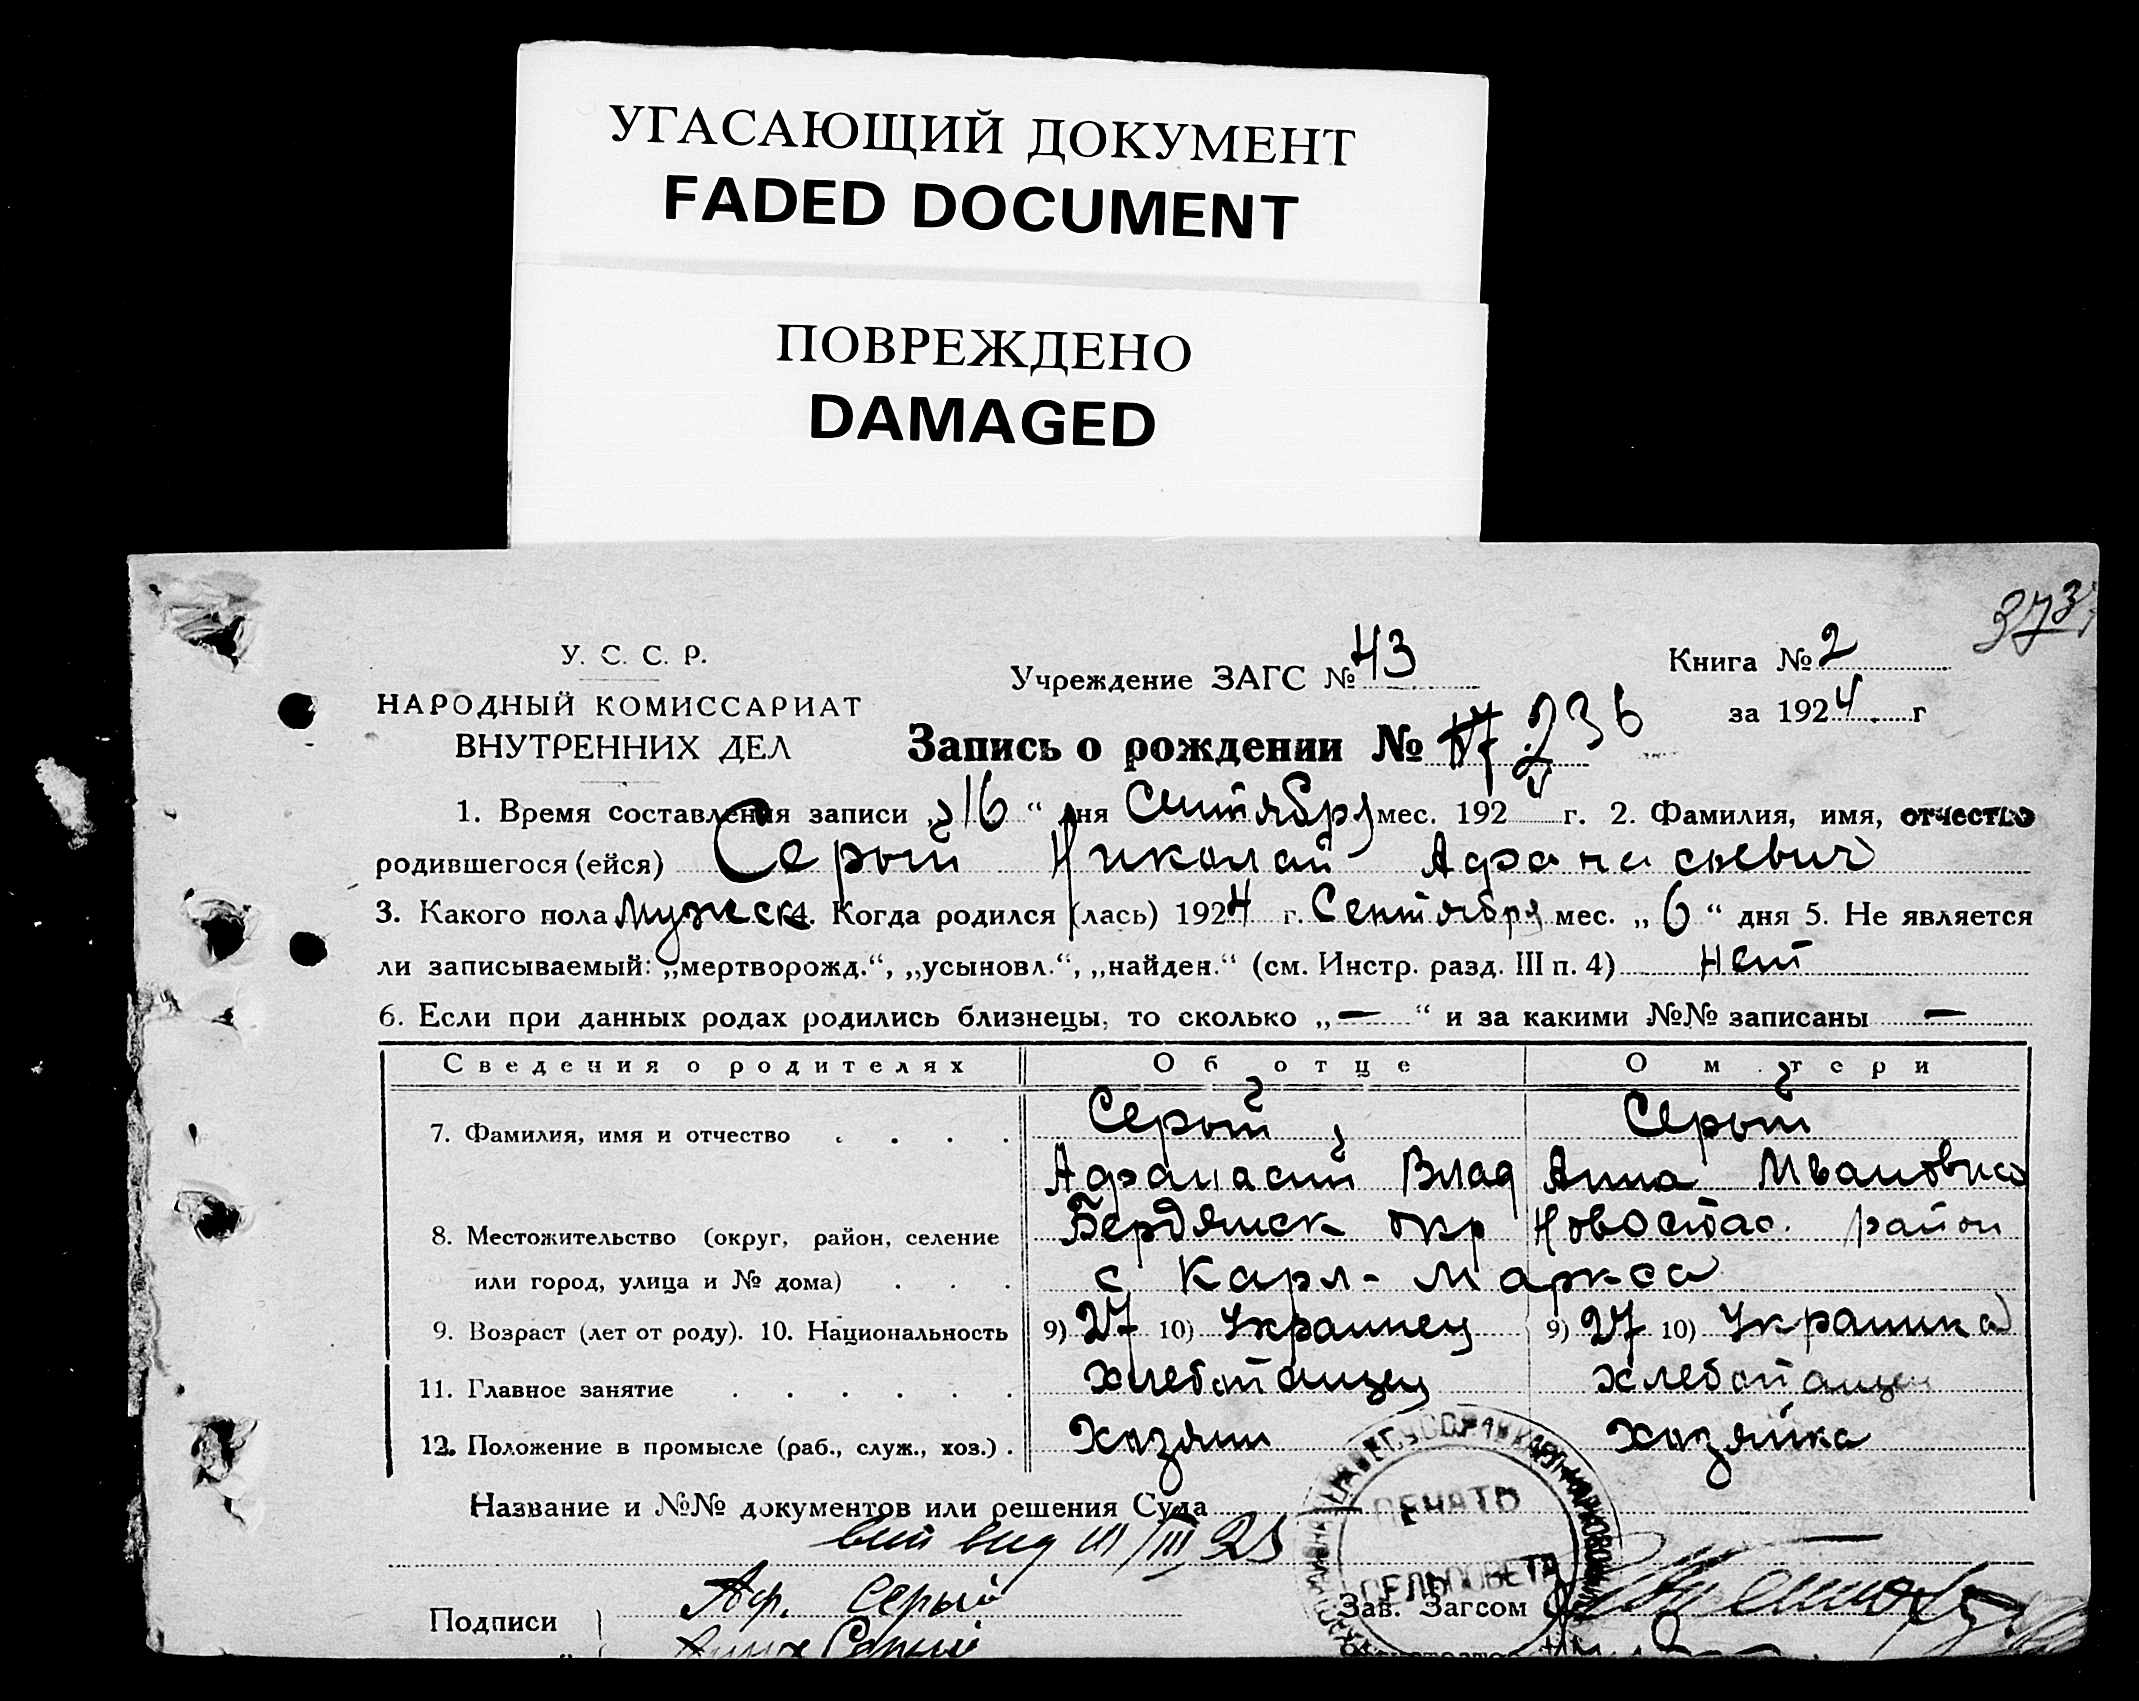 УГАСАЮЩИЙ ДОКУМЕНТ
FADED DOCUMENT
ПОВРЕЖДЕНО
DAMAGED
373
У. С. С. Р.
НАРОДНЫЙ КОМИССАРИАТ
ВНУТРЕННИХ ДЕЛ
Учреждение ЗАГС № 43
Книга № 2
за 1924 г
Запись о рождении № 236
1. Время составления записи „16“ дня Сентября мес. 192 г. 2. Фамилия, имя, отчество
родившегося (ейся) Серый Николай Афанасьевич
3. Какого пола Мужск 4. Когда родился (лась) 1924 г. Сентября мес. „6“ дня 5. Не является
ли записываемый: „мертворожд.“, „усыновл.“, „найден.“ (см. Инстр. разд. III п. 4) Нет
6. Если при данных родах родились близнецы, то сколько „—“ и за какими №№ записаны —
Сведения о родителях Об отце О матери
7. Фамилия, имя и отчество Серый Серый
Афанасий Влад Анна Ивановна
8. Местожительство (округ, район, селение Бердянск окр Новоспас. район
или город, улица и № дома) с Карл-Маркса
9. Возраст (лет от роду). 10. Национальность 9) 27 10) Украинец 9) 27 10) Украинка
11. Главное занятие хлебопашец хлебопашец
12. Положение в промысле (раб., служ., хоз.) Хозяин хозяйка
Название и №№ документов или решения Суда
ПЕЧАТЬ
СЕЛЬСОВЕТА
Подписи Аф. Серый
Зав. Загсом
Анна Серый